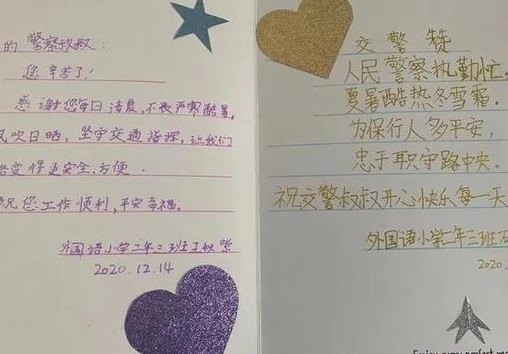 的 警察叔叔：
您辛苦了！
感谢您每日清晨，不畏严寒酷暑，
风吹日晒，坚守交通指挥，让我们
变得更安全、方便．
祝您工作顺利，平安幸福。
外国语小学二年三班王
2020.12.14
交 警 赞
人民警察执勤忙。
夏暑酷热冬雪霜．
为保行人多平安，
忠于职守路中央。
祝交警叔叔开心快乐每一天
外国语小学一年三班石
2020.